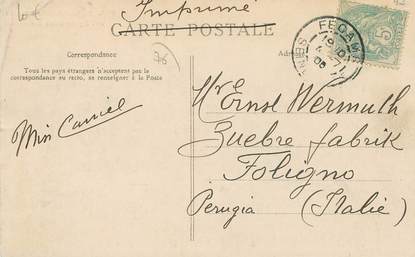 Imprimé
CARTE POSTALE
Correspondance
Tous les pays étrangers n'acceptent pas la
correspondance au recto, se renseigner à la Poste
FECAMP
5
Mr Ernst Wermuth
Zuebre fabrik
Foligno
Perugia (Italie)